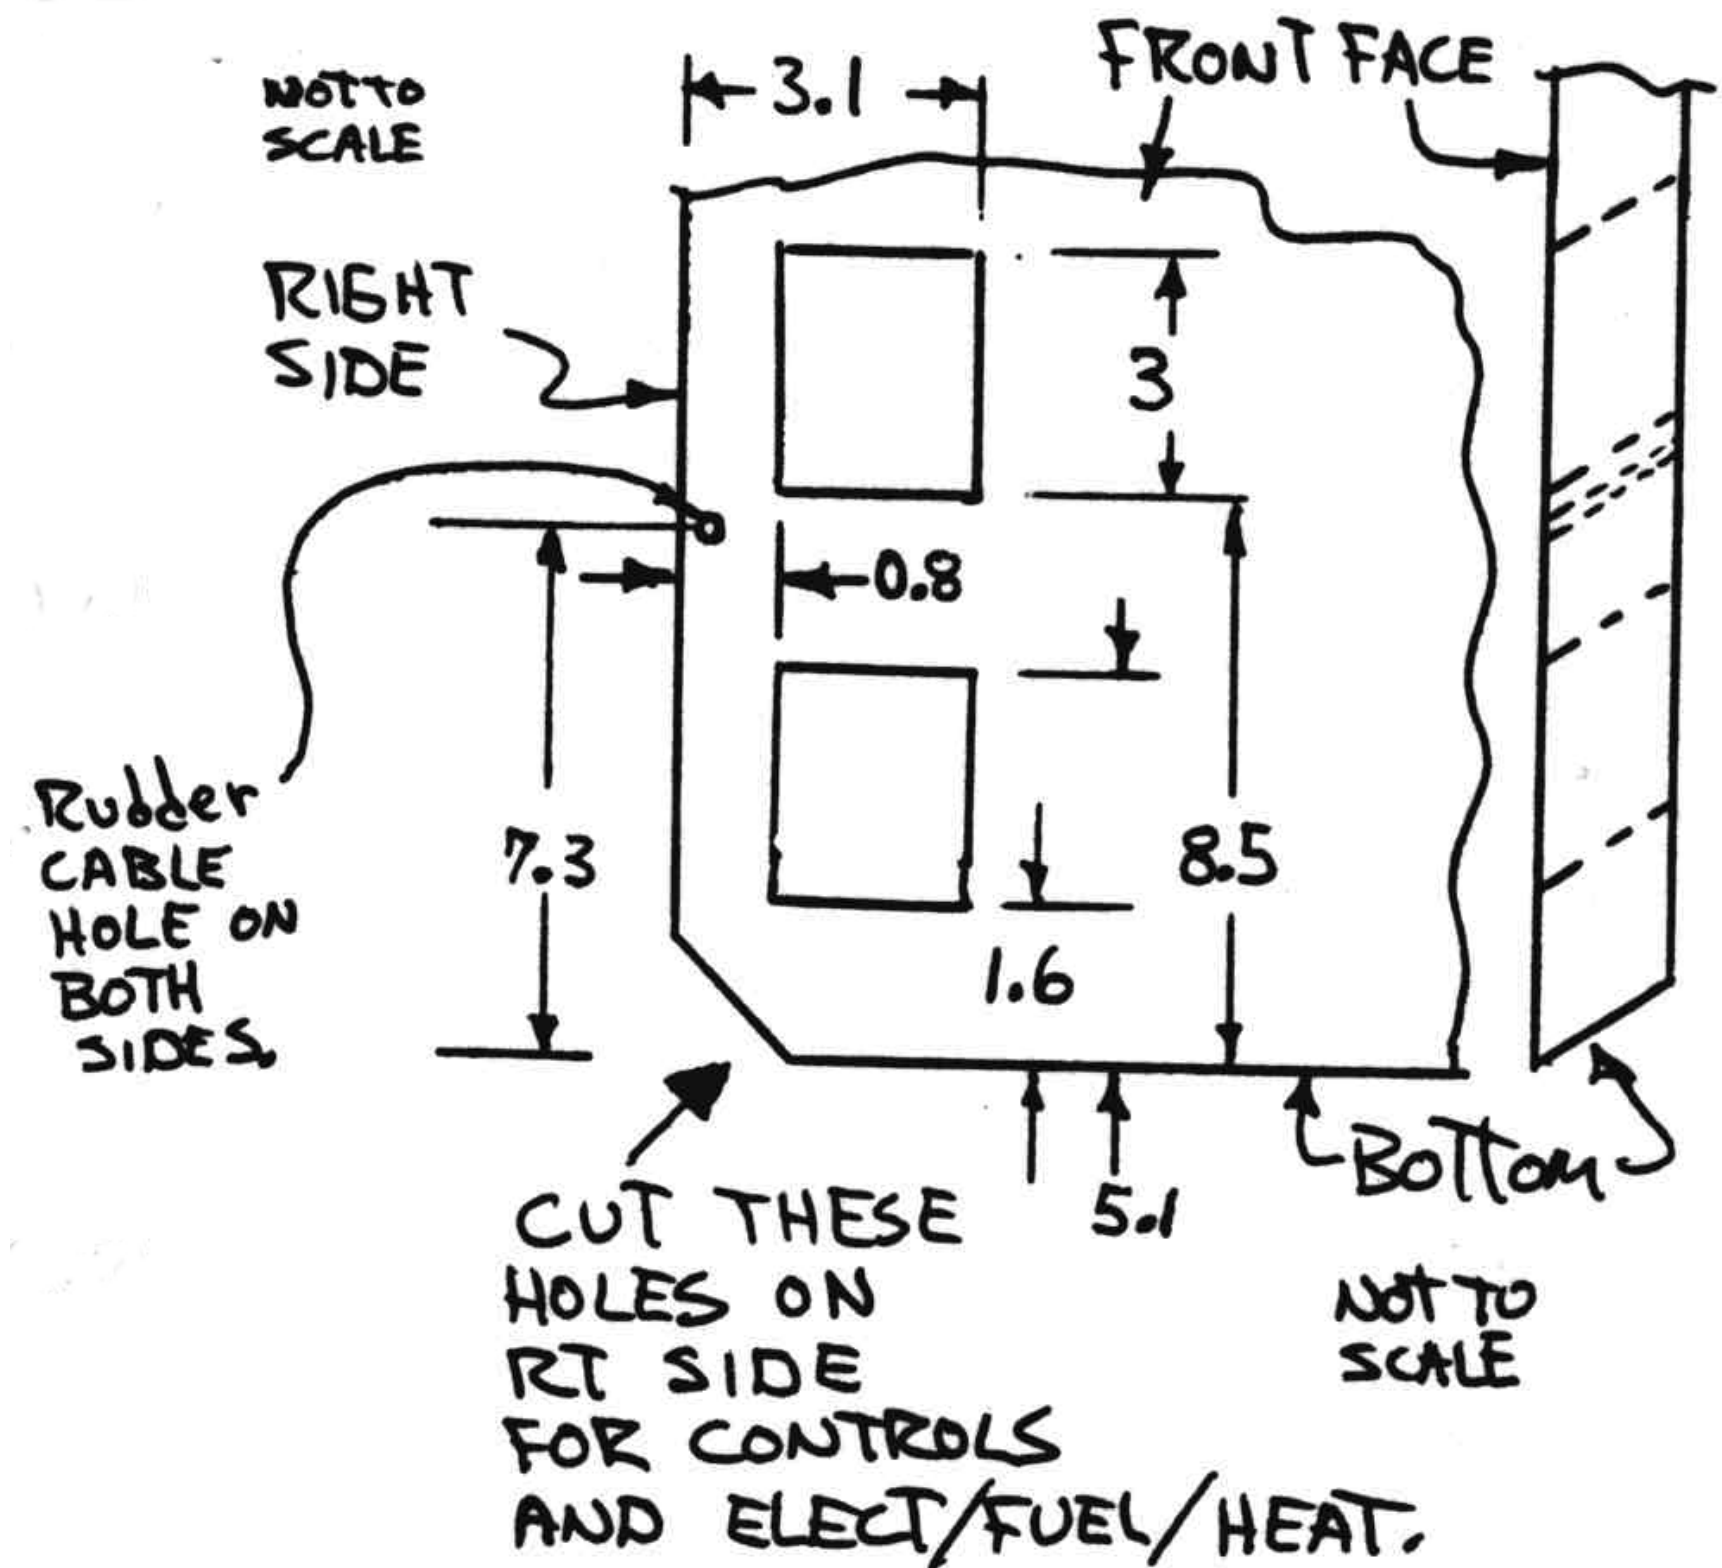 NOT TO
SCALE
3.1
FRONT FACE
RIGHT
SIDE
3
0.8
Rudder
CABLE
HOLE ON
BOTH
SIDES.
7.3
8.5
1.6
CUT THESE
HOLES ON
RT SIDE
FOR CONTROLS
AND ELECT/FUEL/HEAT.
5.1
BOTTOM
NOT TO
SCALE